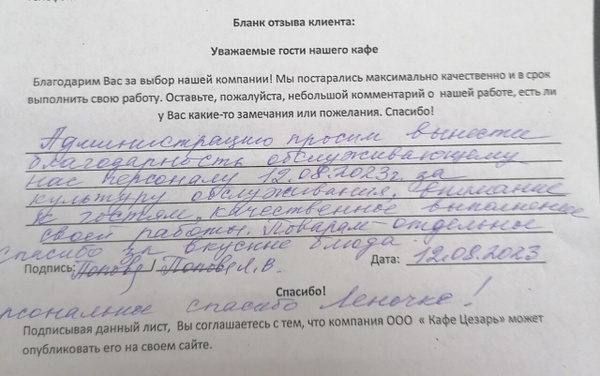 Бланк отзыва клиента:
Уважаемые гости нашего кафе
Благодарим Вас за выбор нашей компании! Мы постарались максимально качественно и в срок
выполнить свою работу. Оставьте, пожалуйста, небольшой комментарий о нашей работе, есть ли
у Вас какие-то замечания или пожелания. Спасибо!
Администрацию просим вынести
благодарность обслуживающему
нас персоналу 12.08.2023г. за
культуру обслуживания, внимание
к гостям, качественное выполнение
своей работы. Поварам - отдельное
спасибо за вкусные блюда.
Подпись: Попова / Попова Л. В. Дата: 12.08.2023
Спасибо!
рсональное спасибо Леночке!
Подписывая данный лист, Вы соглашаетесь с тем, что компания ООО « Кафе Цезарь» может
опубликовать его на своем сайте.